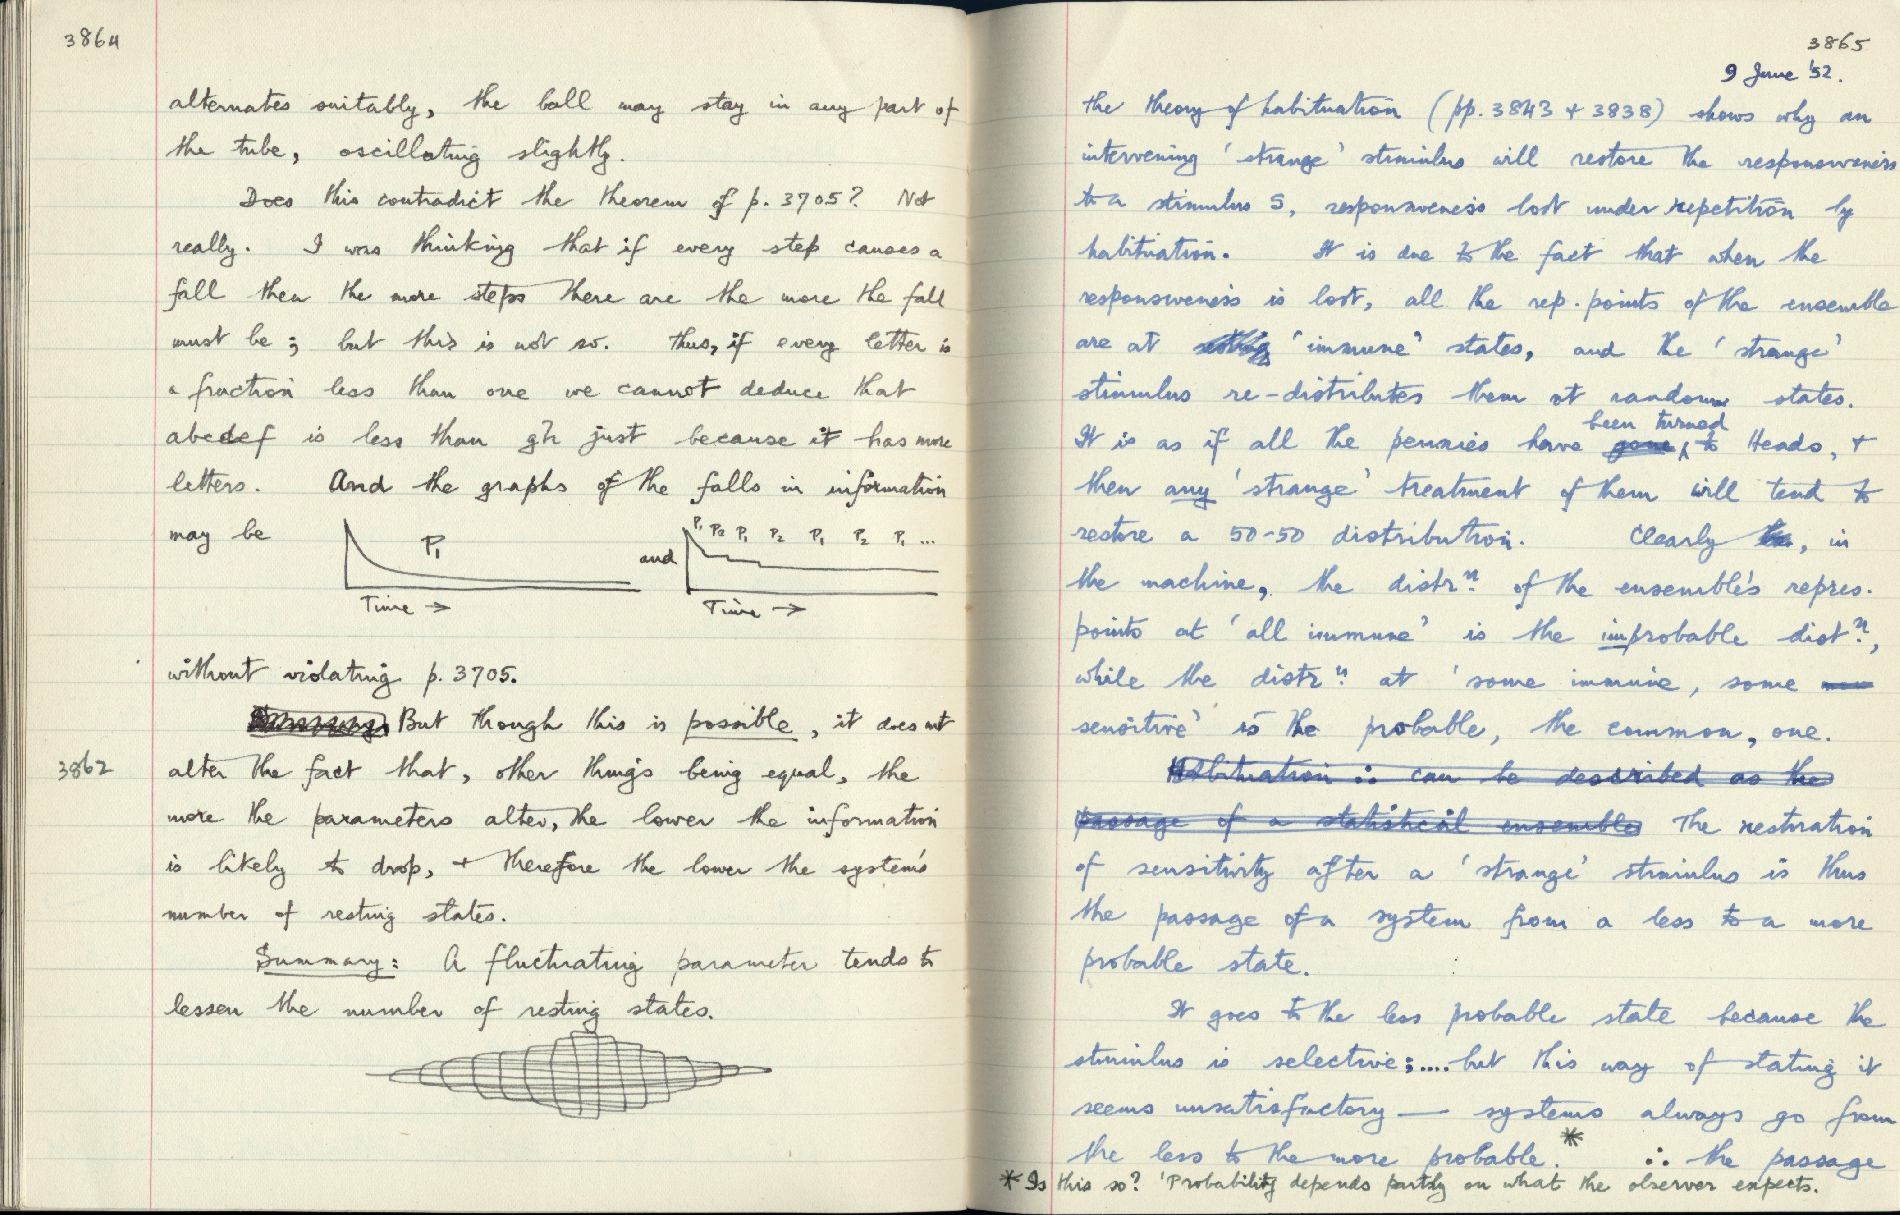 3864
alternates suitably, the ball may stay in any part of
the tube, oscillating slightly.
Does this contradict the theorem of p. 3705? Not
really. I was thinking that if every step causes a
fall then the more steps there are the more the fall
must be; but this is not so. Thus, if every letter is
a fraction less than one we cannot deduce that
abcdef is less than gh just because it has more
letters. And the graphs of the falls in information
may be
P₁
Time →
and
P₁ P₂ P₁ P₂ P₁ P₂ P₁ ...
Time →
without violating p. 3705.
But though this is possible, it does not
3862
alter the fact that, other things being equal, the
more the parameters alter, the lower the information
is likely to drop, + therefore the lower the system's
number of resting states.
Summary: A fluctuating parameter tends to
lessen the number of resting states.
3865
9 June '52.
The theory of habituation (pp. 3843 + 3838) shows why an
intervening 'strange' stimulus will restore the responsiveness
to a stimulus S, responsiveness lost under repetition by
habituation. It is due to the fact that when the
responsiveness is lost, all the rep. points of the ensemble
are at 'immune' states, and the 'strange'
stimulus re-distributes them at random states.
It is as if all the pennies have been turned to Heads, +
then any 'strange' treatment of them will tend to
restore a 50-50 distribution. Clearly, in
the machine, the distrⁿ of the ensemble's repres.
points at 'all immune' is the improbable distⁿ,
while the distrⁿ at 'some immune, some
sensitive' is the probable, the common, one.
Habituation ∴ can be described as the
passage of a statistical ensemble The restoration
of sensitivity after a 'strange' stimulus is thus
the passage of a system from a less to a more
probable state.
It goes to the less probable state because the
stimulus is selective;.... but this way of stating it
seems unsatisfactory — systems always go from
the less to the more probable.* ∴ the passage
* Is this so? 'Probability depends partly on what the observer expects.